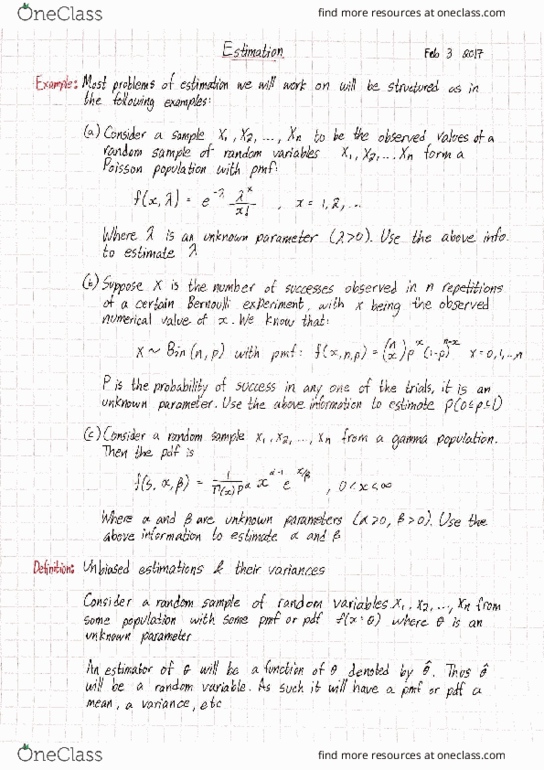 OneClass
find more resources at oneclass.com
Estimation
Feb 3 2017
Example: Most problems of estimation we will work on will be structured as in
the following examples:
(a) Consider a sample X₁, X₂, ..., Xn to be the observed values of a
random sample of random variables X₁, X₂, ... Xn form a
Poisson population with pmf:
f(x, λ) = e^-λ λ^x/x! , x = 1, 2, ...
Where λ is an unknown parameter (λ>0). Use the above info.
to estimate λ
(b) Suppose X is the number of successes observed in n repetitions
of a certain Bernoulli experiment, with x being the observed
numerical value of x. We know that:
X ~ Bin (n, p) with pmf: f(x, n, p) = (n x) p^x (1-p)^n-x x = 0, 1, ..., n
P is the probability of success in any one of the trials, it is an
unknown parameter. Use the above information to estimate P(0≤p≤1)
(c) Consider a random sample x₁, x₂, ..., Xn from a gamma population.
Then the pdf is
α, β) = x^α-1 e^x/β , 0 < x < ∞
Where α and β are unknown parameters (α>0, β>0). Use the
above information to estimate α and β
Definition: Unbiased estimations & their variances
Consider a random sample of random variables X₁, X₂, ..., Xn from
some population with some pmf or pdf f(x; θ) where θ is an
unknown parameter
An estimator of θ will be a function of θ denoted by θ̂. Thus θ̂
will be a random variable. As such it will have a pmf or pdf a
mean, a variance, etc
OneClass
find more resources at oneclass.com